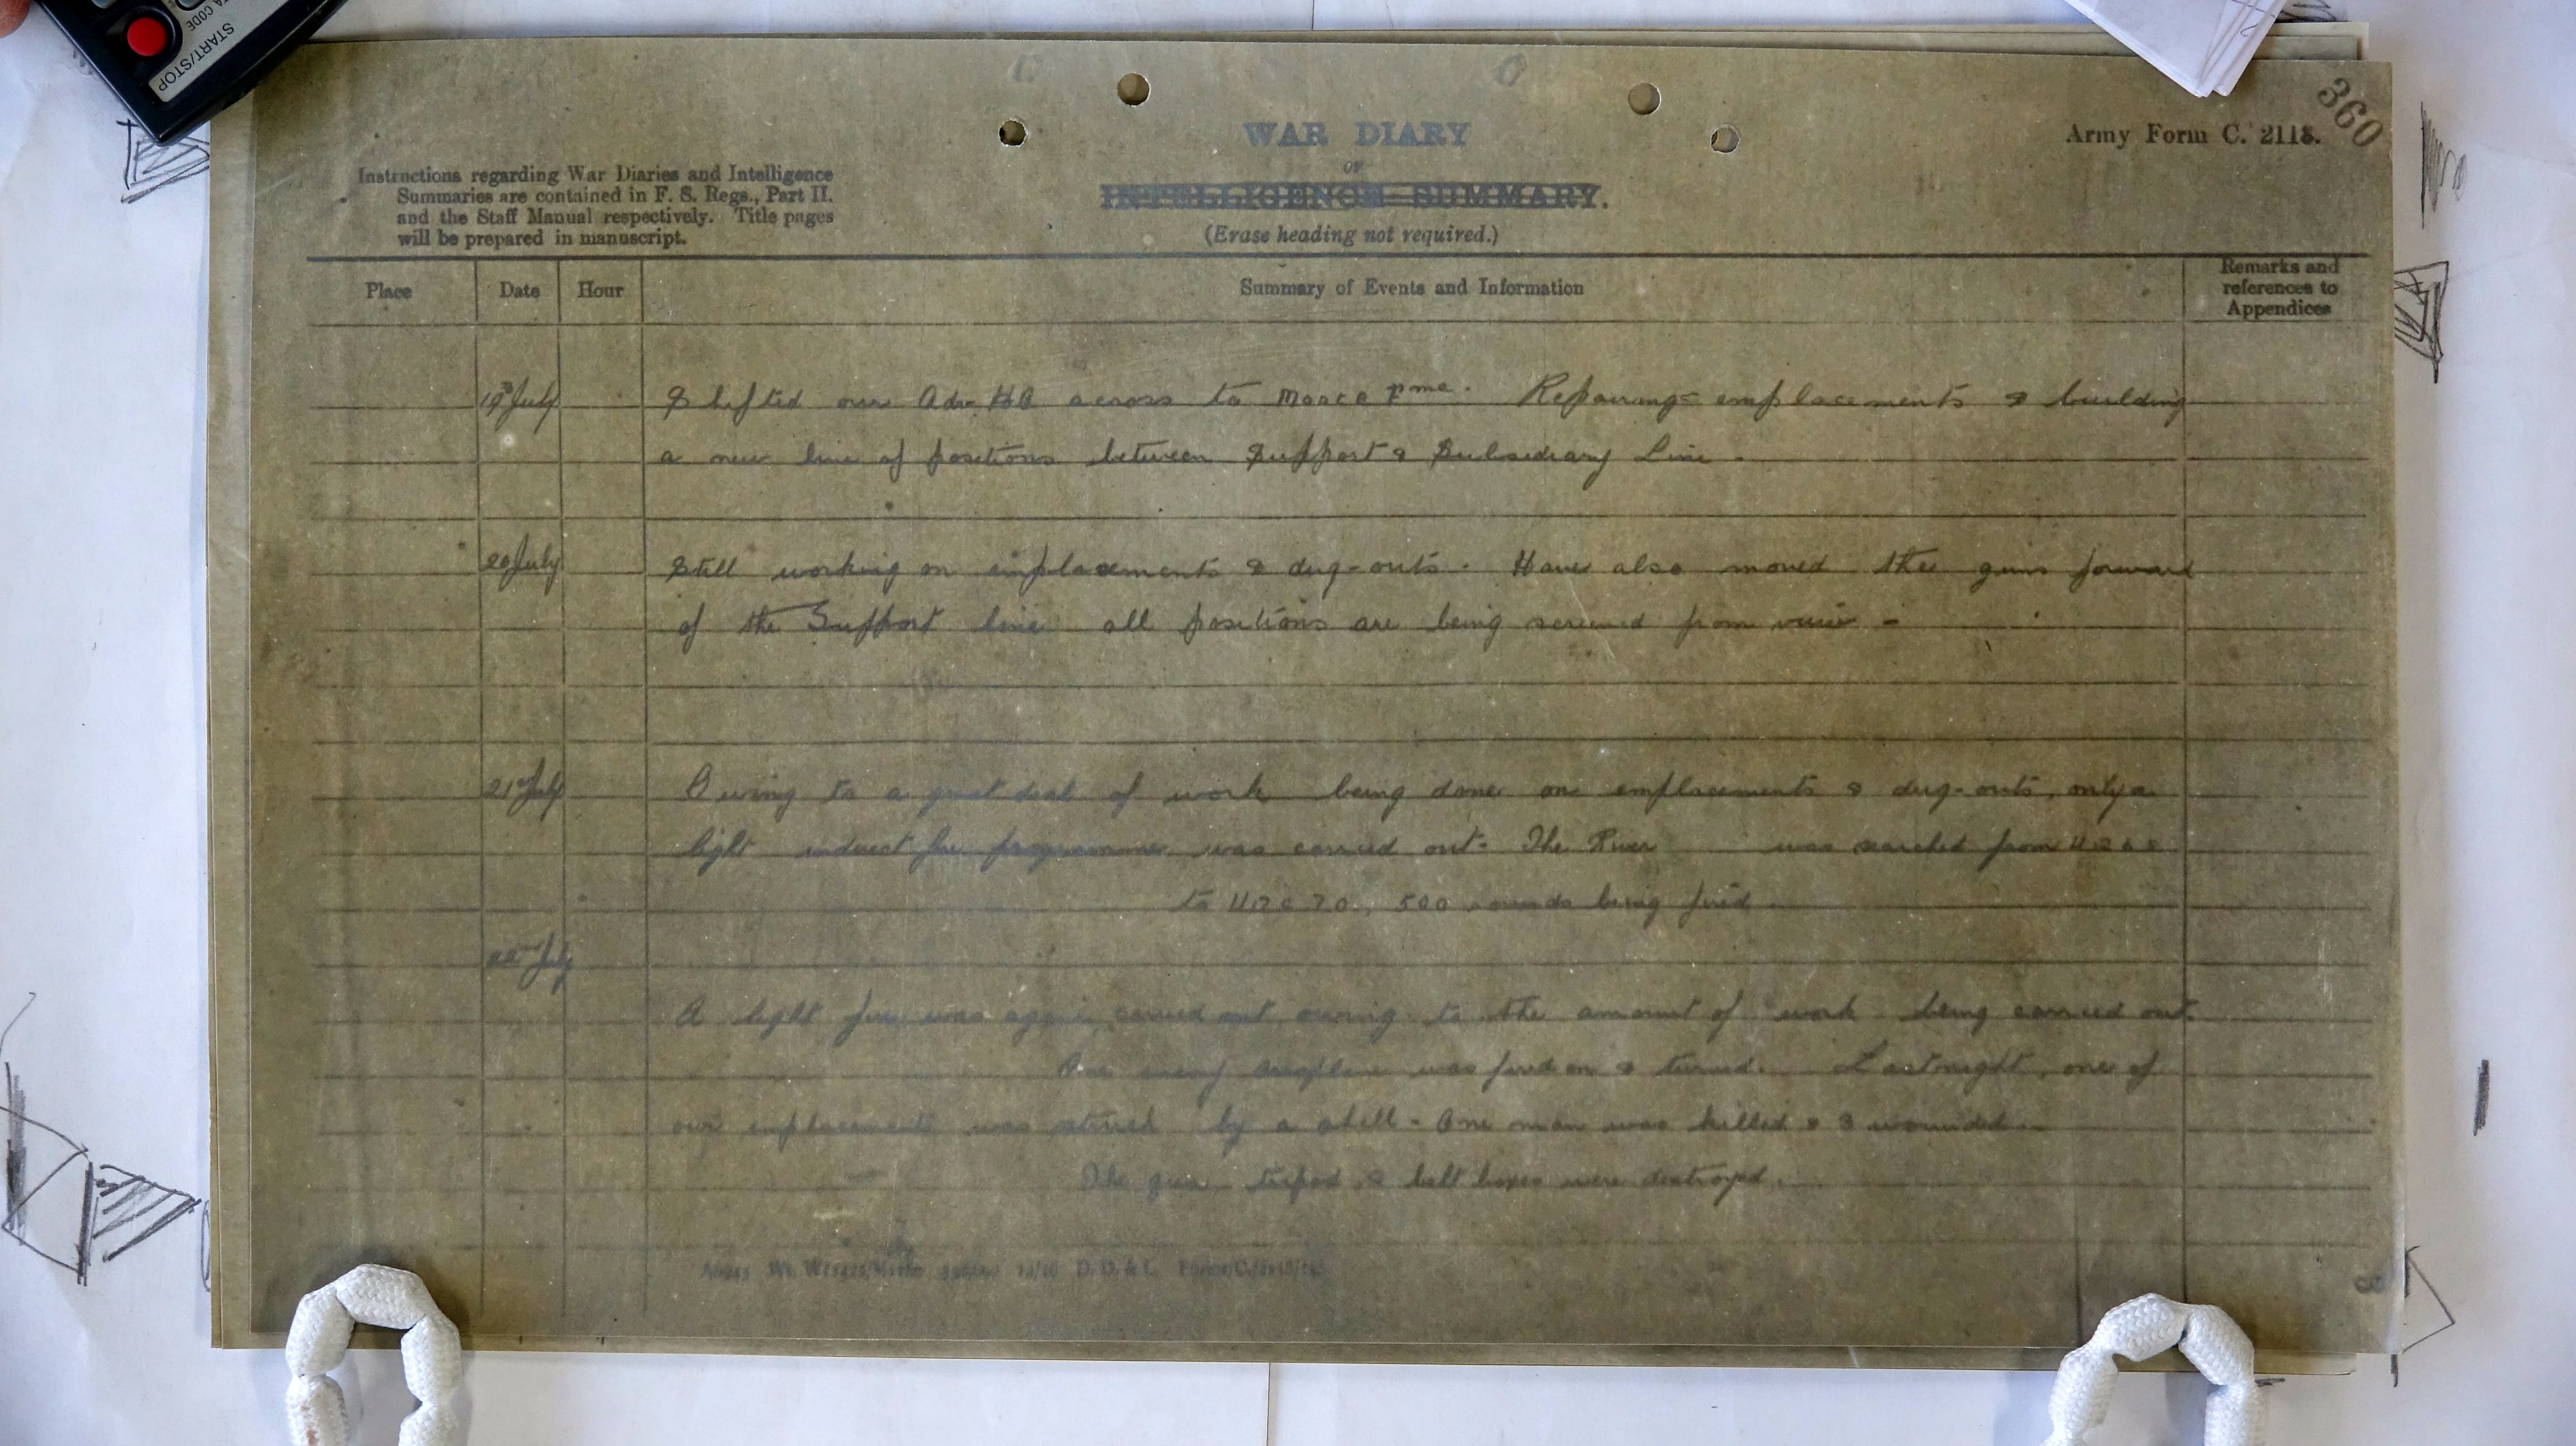 TA CODE
START/STOP
360
WAR DIARY
or
INTELLIGENCE SUMMARY.
(Erase heading not required.)
Army Form C. 2118.
Instructions regarding War Diaries and Intelligence
Summaries are contained in F. S. Regs., Part II.
and the Staff Manual respectively. Title pages
will be prepared in manuscript.
Place Date Hour Summary of Events and Information Remarks and
references to
Appendices
19th July Shifted our Adv HQ across to Fme. Repairing emplacements & building
a new line of positions between Support & Subsidiary Line.
20 July Still working on emplacements & dug-outs. Have also moved the guns forward
of the Support line all positions are being screened from view -
21st July Owing to a great deal of work being done on emplacements & dug-outs, only a
light indirect fire programme was carried out. The River was searched from
to U17c 70, 500 rounds being fired.
22nd July
A light fire was again carried out, owing to the amount of work being carried out.
One enemy aeroplane was fired on & turned. Last night, one of
our emplacements was struck by a shell - One man was killed & 3 wounded.
The gun tripod & belt boxes were destroyed.
D. D. & L.